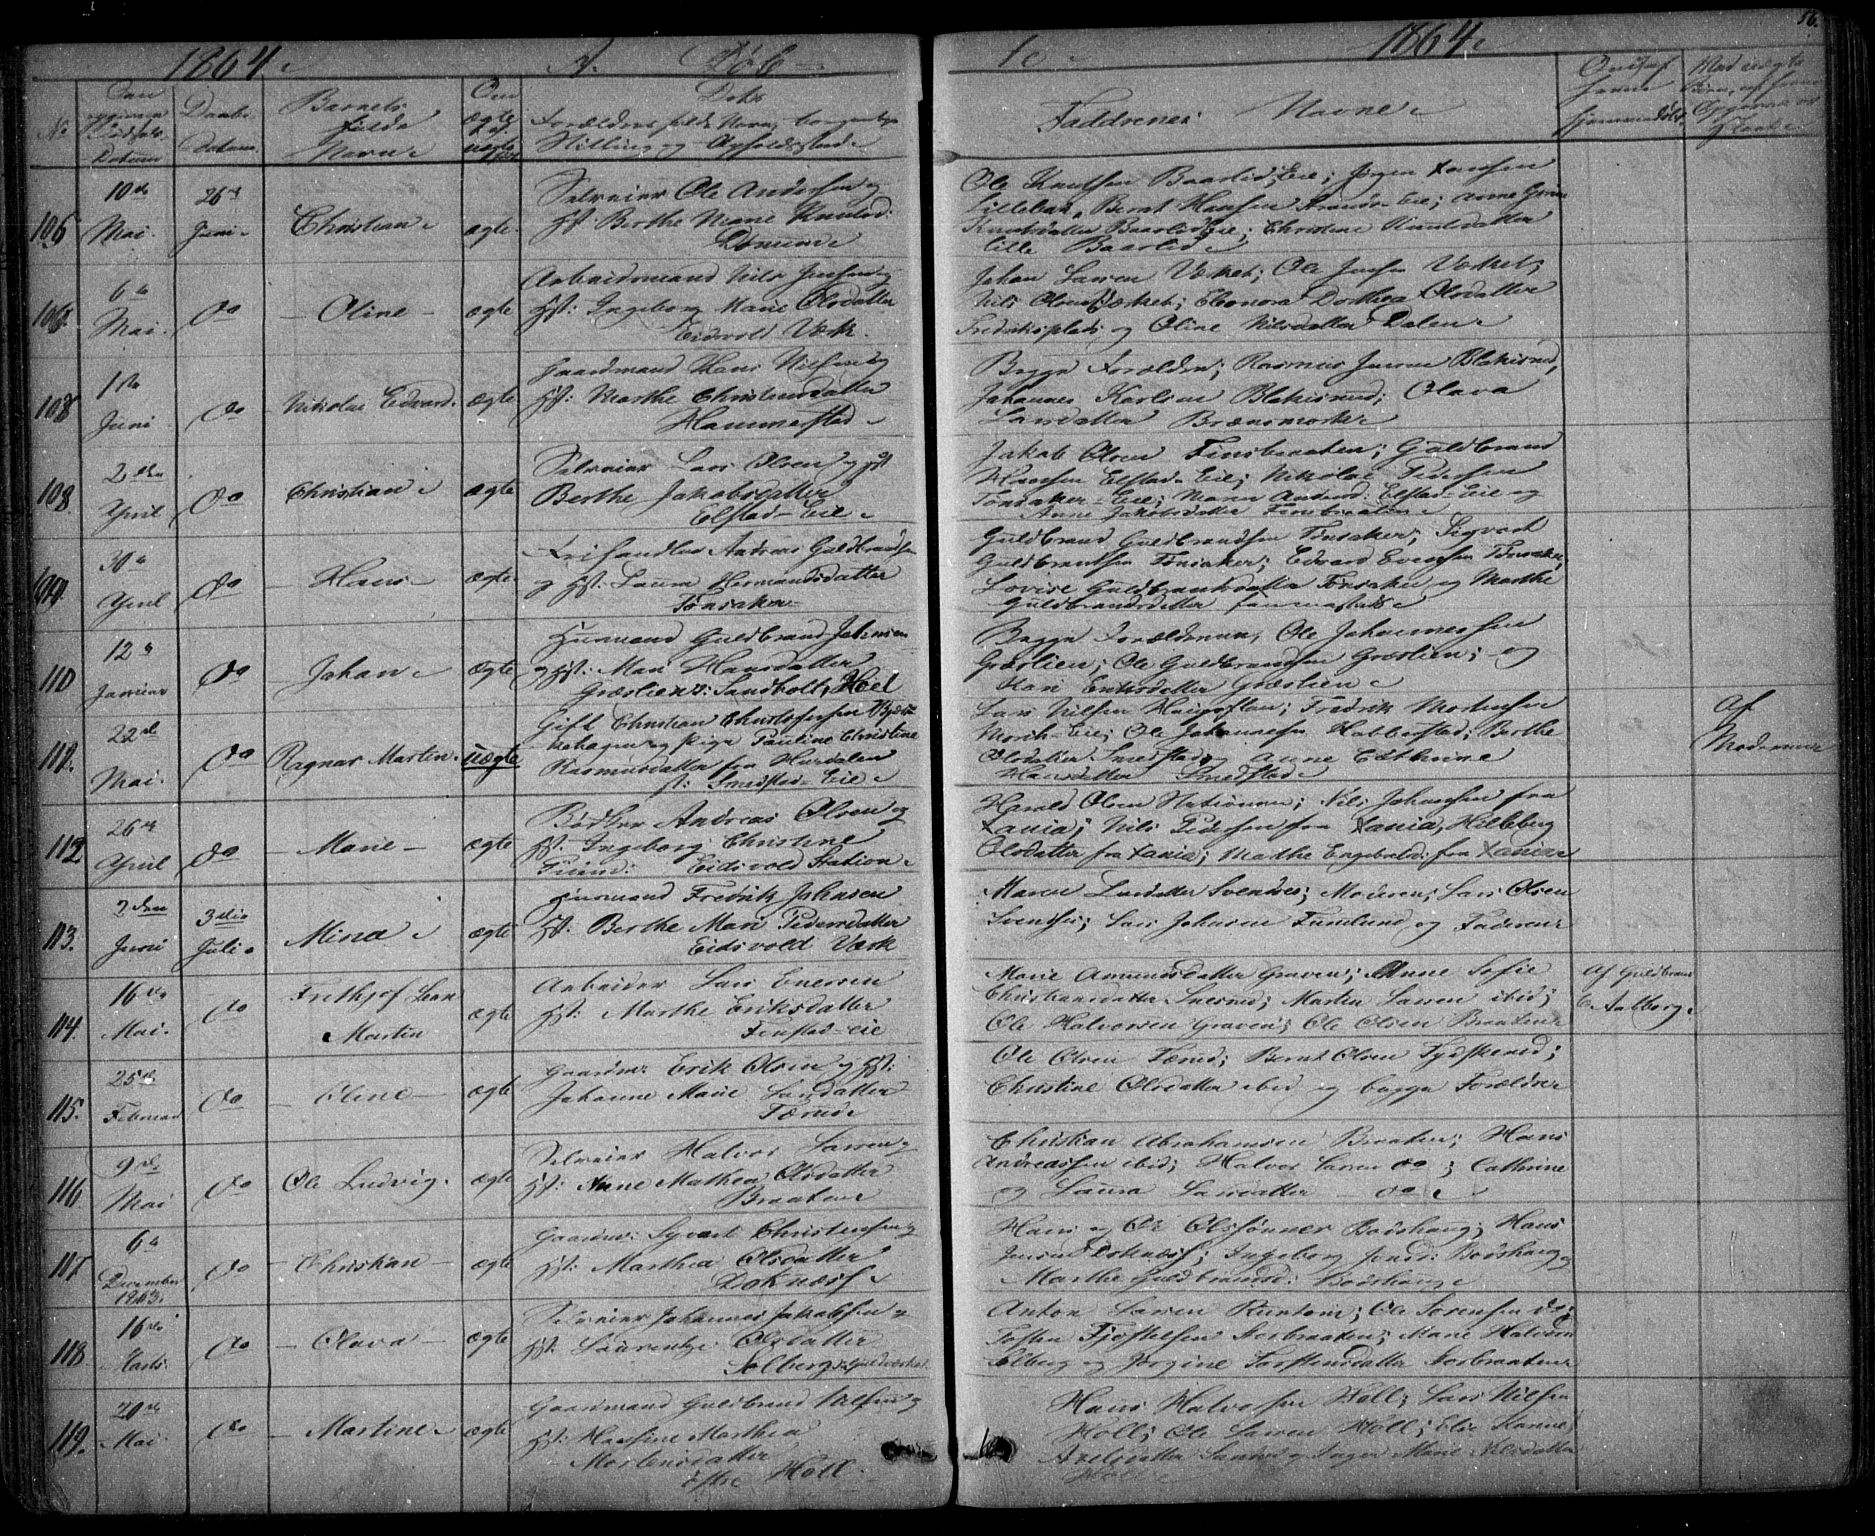 56.
1864.
A. Døb
te
1864.
No
Datum
Daabs
Datum.
Barnets
fulde
Navn.
Om
ægte
Forældres fulde Navn, borgerlige
Stilling og Opholdssted.
Faddrenes Navne.
106
10de
Mai.
26de
Juni.
Christian.
ægte.
Selveier Ole Andersen og
Hst. Berthe Marie Knutsd:
Ole Knutsen Baarlid Eie; Jørgen
Lillebak, Bernt Hansen
Knutsdatter Baarlid Eie; Christine Knutsdatter
lille Baarlid.
6te
Mai
Do
Oline
ægte
Arbeidsmand Nils Jensen og
Hst: Ingeborg Marie Olsdatter
Eidsvold Værk.
Johan Larsen Værket; Ole Jensen Værket;
Nils Olsen Værket; Eleonora Dorthea Olsdatter
Fredriksplads og Oline Nilsdatter Dalen.
108
1ste
Juni
Do
Nikolai Edvard.
ægte.
Gaardmand Hans Nilsen og
Hst: Marthe Christensdatter
Hammerstad.
Begge Forældre; Rasmus Jensen Blakisrud,
Johannes Karlsen Blakisrud; Olava
Larsdatter Brænsmork.
108.
2den
April
Do
Christian.
ægte
Selveier Lars Olsen og Hst
Berthe Jakobsdatter
Elstad-Eie.
Jakob Olsen Finsbraaten; Guldbrand
Hansen Elstad-Eie; Nikolai Pedersen
Tønsaker-Eie; Maren Andersd: Elstad-Eie og
Anne Jakobsdatter Finsbraaten.
109.
30te
April
Do
Hans
ægte
Andreas Guldbrandsen
og Hst: Laura Hermandsdatter
Tønsaker
Guldbrand Guldbrandsen Tønsaker; Sigvart
Guldbrandsen Tønsaker; Edvard Evensen Tønsaker,
Lovise Guldbrandsdatter Tønsaker og Marthe
Guldbrandsdatter
110
12te
Januar
Do
Johan.
ægte
Huusmand Guldbrand Johansen
og Hst: Mari Hansdatter
Græslien u: Sandholt, Hoel
Begge Forældrene, Ole Johannessen
Græslien; Ole Guldbrandsen Græslien; og
Kari Eriksdatter Græslien.
22de
Mai.
Do
Ragnar Martin.
uægte
Gift Christian Christophersen
og Pige Pauline Christine
Rasmusdatter fra Hurdalen
Smedstad-Eie.
Lars Nilsen Haugsflaen; Fredrik Mortensen
Mork-Eie; Ole Johannesen Habberstad; Berthe
Olsdatter Smedstad; Anne Cathrine
Hansdatter Smedstad.
Af
Moderen
112
26de
April
Do
Marie
ægte
Bødker Andreas Olsen og
Hst: Ingeborg Christine
Eidsvold Station.
Harald Olsen Stationen; Nils Johansen fra
Nils Pedersen fra
Olsdatter fra
113.
2den
Juni
3die
Juli.
Mina.
ægte
Huusmand Fredrik Johnsen
Hst: Berthe Mari Pedersdatter
Eidsvold Værk
Maren Larsdatter Svendsen; Moderen; Lars Olsen
Svendsen; Lars Johnsen Funlund og Faderen
114.
16de
Mai.
Do
Frithjof Lean
Martin
ægte
Arbeider Lars Enersen
Hst: Marthe Eriksdatter
Finstad-eie
Marie Amundsdatter Graven; Anne Sofie
Christiansdatter; Martin Larsen ibid;
Ole Halvorsen Graven; Ole Olsen Braaten
Af Guldbrand
C. Aalborg.
115.
25de
Februar
Do
Eline
ægte
Gaardm. Erik Olsen og Hst:
Johanne Marie Larsdatter
Tærud.
Ole Olsen Tærud; Bernt Olsen Tydskerud;
Christine Olsdatter ibid og begge Forældre
116
9de
Mai
Do
Ole Ludvig.
ægte
Selveier Halvor Larsen og
Hst: Anne Mathea Olsdatter
Braaten
Christian Abrahamsen Braaten; Hans
Andreassen ibid; Halvor Larsen do; Cathrine
og Laura Larsdatter do.
117
6te
December
1863.
Do
Christian
ægte
Gaardm: Syvert Christensen og
Hst: Marthea Olsdatter
Doknæss.
Hans og Ole Olssønner Bodshaug; Hans
Jensen Doknæss; Ingeborg Jensd: Bodshaug
Marthe Guldbrandsd: Bodshaug.
118
16de
Marts
Do
Olava
ægte
Selveier Johannes Jakobsen og
Hst: Laurentze Olsdatter
Solberg
Anton Larsen; Ole Sørensen do;
Tosten Fjostelsen Storbraaten; Marie Halvorsd
Solberg og Jørgine Torstensdatter Storbraaten
119.
20de
Mai
Do
Martine.
ægte
Gaardmand Guldbrand Nilsen og
Hst: Hansine Marthea
Mortensdatter
østre Holl.
Hans Halvorsen Holl; Lars Nilsen
Holl; Ole Larsen Holl; Elie Karine
Axelsdatter og Inger Marie Nilsdatter
Holl